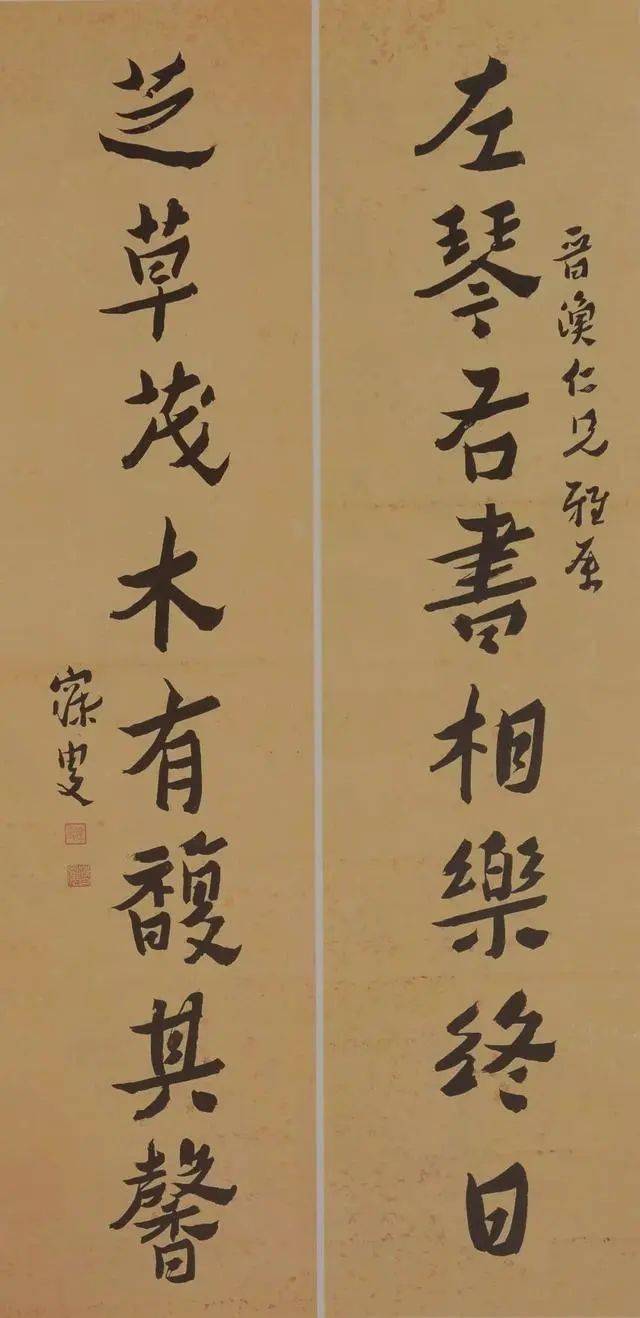 晉渙仁兄雅屬
左琴右書相樂終日
芝草茂木有馥其馨
寐叟